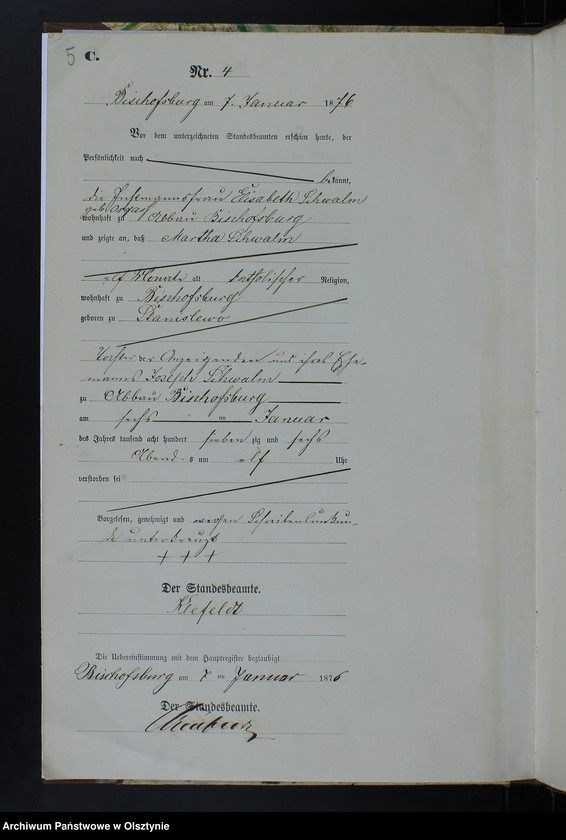 5 C.
Nr. 4
Bischofsburg am 7. Januar 1876
Vor dem unterzeichneten Standesbeamten erschien heute, der
Persönlichkeit nach
bekannt,
die Instmannsfrau Elisabeth Schwalm
geb. Orgass
wohnhaft zu Abbau Bischofsburg
und zeigte an, daß Martha Schwalm
elf Monate alt katholischer Religion,
wohnhaft zu Bischofsburg
geboren zu Stanislewo
Tochter der Anzeigenden und ihres Ehe-
manns Joseph Schwalm
zu Abbau Bischofsburg
am sechs ten Januar
des Jahres tausend acht hundert sieben zig und sechs
Abends um elf Uhr
verstorben sei
Vorgelesen, genehmigt und wegen Schreibensunkun-
de unterkreuzt
+ + +
Der Standesbeamte.
Klefeldt
Die Uebereinstimmung mit dem Hauptregister beglaubigt
Bischofsburg am 7 ten Januar 1876
Der Standesbeamte.
Archiwum Państwowe w Olsztynie